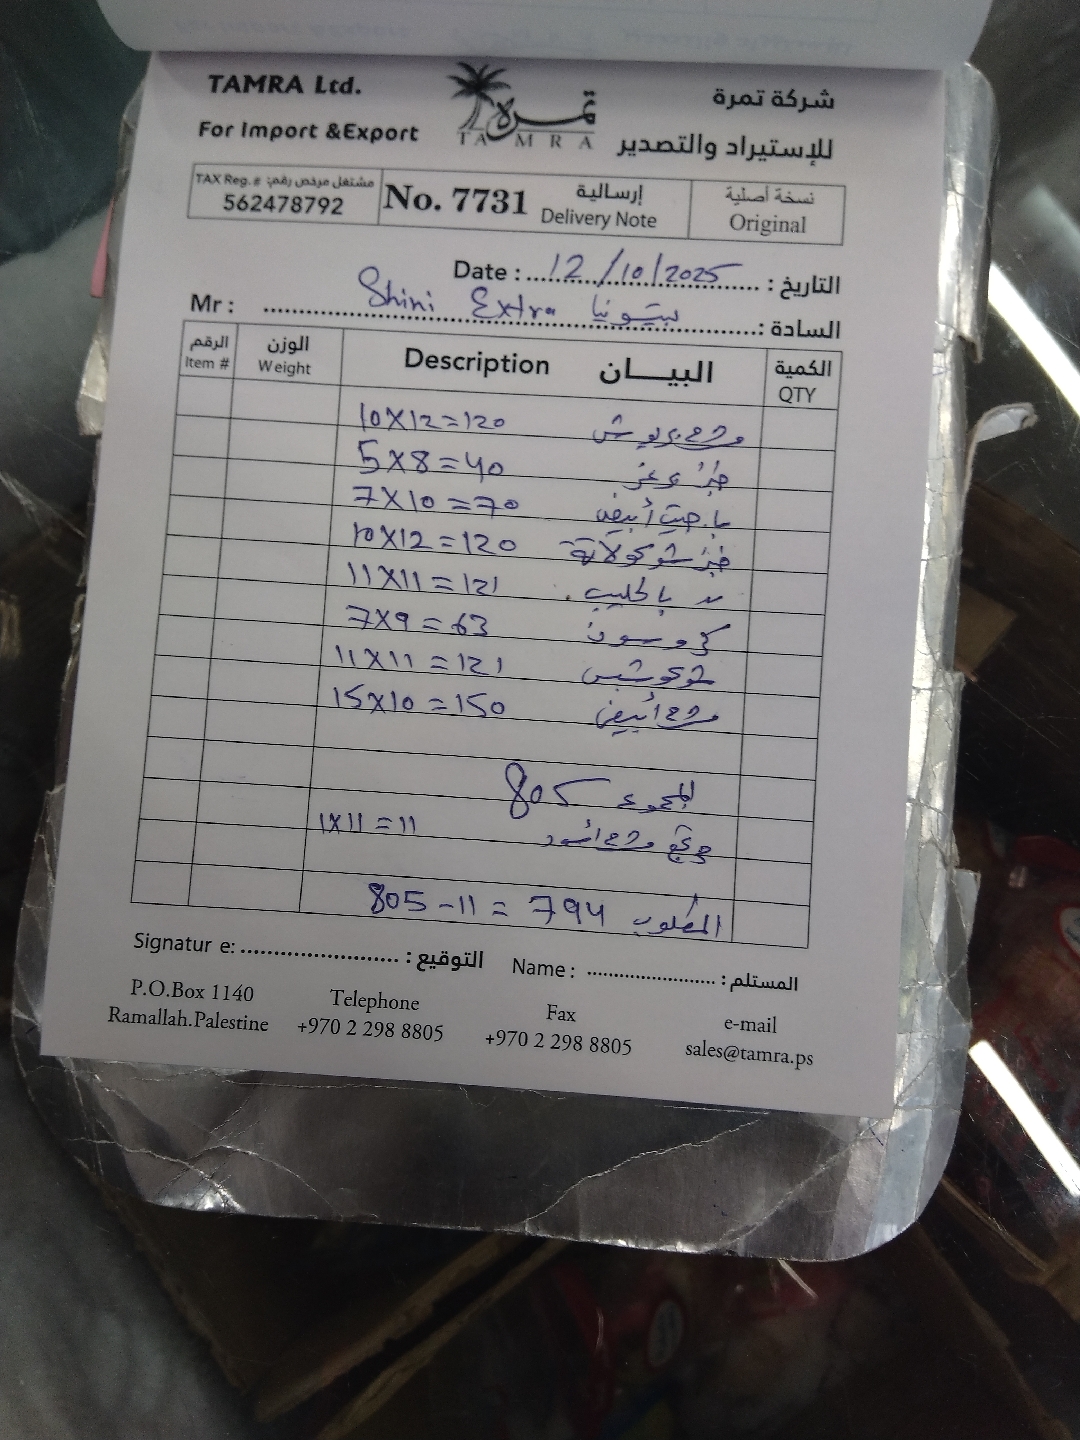 TAMRA Ltd.
For Import &Export
تمرة
TAMRA
شركة تمرة
للإستيراد والتصدير
TAX Reg. # مشتغل مرخص رقم:
562478792
No. 7731
إرسالية
Delivery Note
نسخة أصلية
Original
Date : 12/10/2025 التاريخ :
Mr : Shini Extra بيتونيا السادة :
الرقم الوزن البيـــان الكمية
Item # Weight Description QTY
10X12=120
5X8=40 خبز
7X10=70 أبيض
10X12=120 خبز شوكولاتة
11X11=121 بالحليب
7X9=63
11X11=121
15X10=150 أبيض
المجموع 805
1X11=11
المطلوب 805-11=794
Signatur e: التوقيع :
Name : المستلم :
P.O.Box 1140
Ramallah.Palestine
Telephone
+970 2 298 8805
Fax
+970 2 298 8805
e-mail
sales@tamra.ps